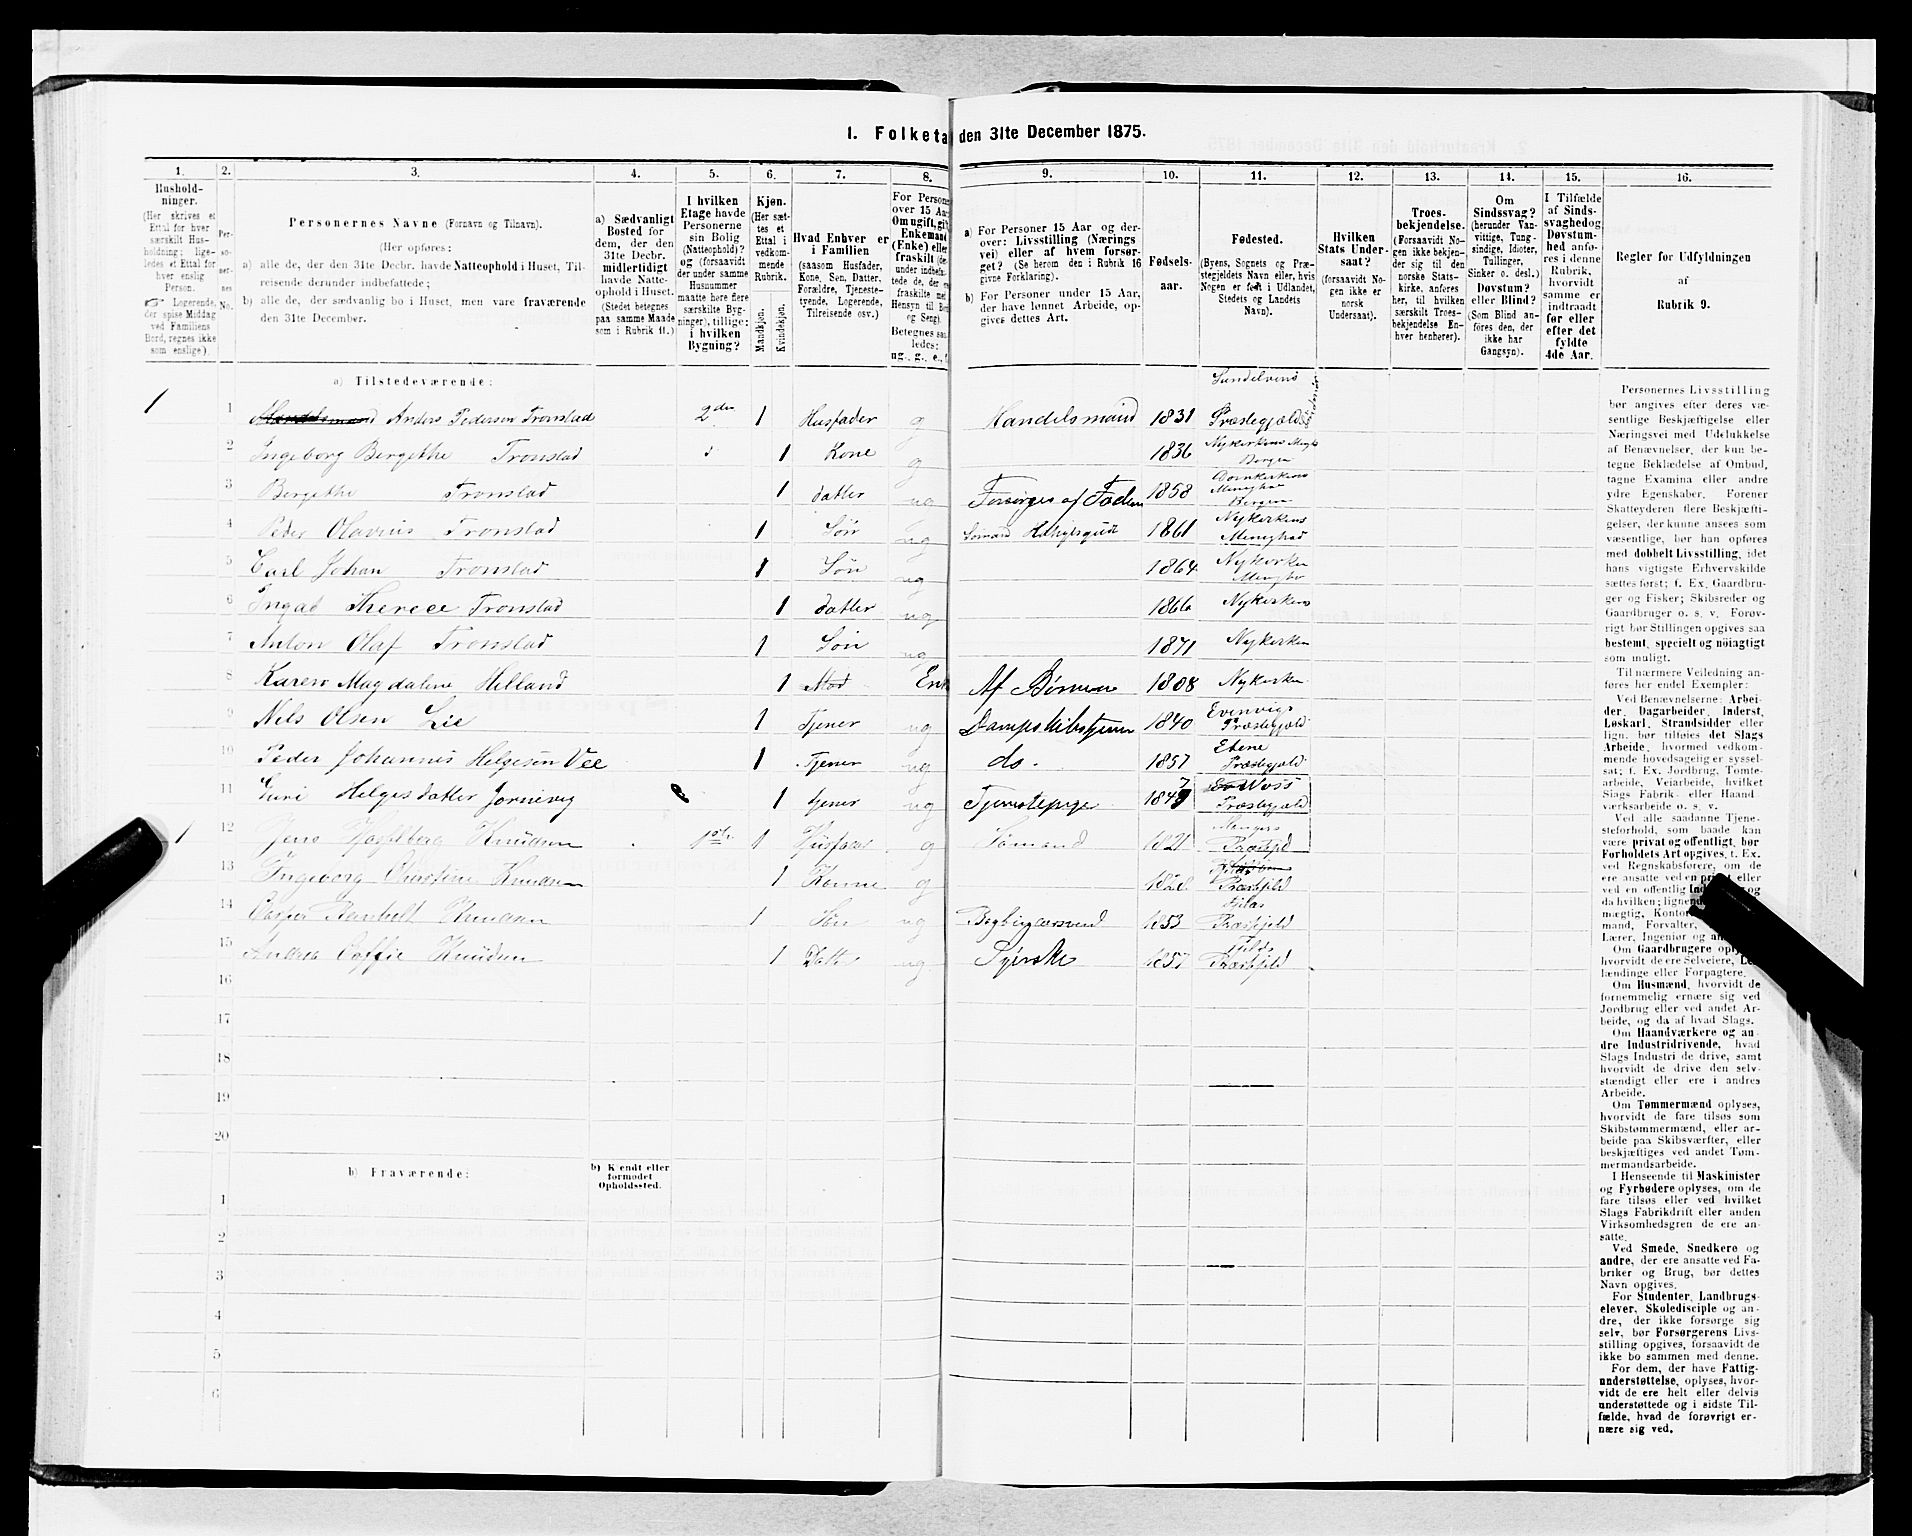 1. Folketa den 31te December 1875.
1.
Hushold-
ninger.
(Her skrives et
Ettal for hver
særskilt Hus-
holdning; lige-
ledes et Ettal for
hver enslig
Person.
☞ Logerende,
der spise Middag
ved Familiens
Bord, regnes ikke
som enslige).
2.
Per-
so-
ner-
nes
No.
3.
Personernes Navne (Fornavn og Tilnavn).
(Her opføres:
a) alle de, der den 31te Decbr. havde Natteophold i Huset, Til-
reisende derunder indbefattede;
b) alle de, der sædvanlig bo i Huset, men vare fraværende
den 31te December.
4.
a) Sædvanligt
Bosted for
dem, der den
31te Decbr.
midlertidigt
havde Natte-
ophold i Huset.
(Stedet betegnes
paa samme Maade
som i Rubrik 11.)
5.
I hvilken
Etage havde
Personerne
sin Bolig
(Natteophold)?
og (forsaavidt
der under samme
Husnummer
maatte høre flere
særskilte Byg-
ninger), tillige:
i hvilken
Bygning?
6.
Kjøn.
(Her sæt-
tes et
Ettal i
vedkom-
mende
Rubrik.
Mandkjøn.
Kvindekjøn.
7.
Hvad Enhver er
i Familien
(saasom Husfader,
Kone, Søn, Datter,
Forældre, Tjeneste-
tyende, Logerende,
Tilreisende osv.)
8.
For Persone
over 15 Aa
Om ugift, gi
Enkemand
(Enke) elle
fraskilt (de
under indbefa
tede de, der e
fraskilte med
Hensyn til Bo
og Seng).
Betegnes saa
ledes:
ug., g., e., f
9.
a) For Personer 15 Aar og der-
over: Livsstilling (Nærings
vei) eller af hvem forsør-
get? (Se herom den i Rubrik 16
givne Forklaring).
b) For Personer under 15 Aar,
der have lønnet Arbeide, op-
gives dettes Art.
10.
Fødsels-
aar.
11.
Fødested.
(Byens, Sognets og Præ-
stegjeldets Navn eller, hvis
Nogen er født i Udlandet,
Stedets og Landets
Navn).
12.
Hvilken
Stats Under-
saat?
(forsaavidt No-
gen ikke er
norsk
Undersaat).
13.
Troes-
bekjendelse.
(Forsaavidt No-
gen ikke bekjen-
der sig til den
norske Stats-
kirke, anføres
her, til hvilken
særskilt Troes-
bekjendelse En-
hver henhører).
14.
Om
Sindssvag?
(herunder Van-
vittige, Tung-
sindige, Idioter,
Tullinger,
Sinker o. desl.)
Døvstum?
eller Blind?
(Som Blind an-
føres den, der
ikke har
Gangsyn).
15.
I Tilfælde
af Sinds-
svaghed og
Døvstum-
hed anfø-
res i denne
Rubrik,
hvorvidt
samme er
indtraadt
før eller
efter det
fyldte
4de Aar.
16.
Regler for Udfyldningen
af
Rubrik 9.
a) Tilstedeværende:
1 1 Anders Pedersen Tronstad 2den 1 Husfader g Handelsmand 1831 Præstegjeld
2 Ingeborg Bergethe Tronstad 1 Kone g 1836 Nykerkens Bergen
3 Bergethe Tronstad 1 datter ug Forsørges af Faderen 1858 Domkerkens Menighed Bergen
4 Peder Olavus Tronstad 1 Søn ug 1861 Nykerkens Menighed
5 Carl Johan Tronstad 1 Søn ug 1864 Nykerken
6 Tronstad 1 datter ug 1866 Nykerkens
7 Anton Olaf Tronstad 1 Søn ug 1871 Nykerken
8 Karen Magdalene Helland 1 Mod Enk Af Børnene 1808 Nykerken
9 Nels Olsen Lie 1 Tjener ug 1840 Evenvigs Præstegjeld
10 Peder Johannes Helgesen Vee 1 Tjener ug do. 1857 Præstegjeld
11 Guri Helgesdatter Jornevig 1 tjener ug Tjenestepige 1847 Woss Præstegjeld
1 12 Jens Knudsen 1ste 1 Husfader g Sømand 1821 Præstjeld
13 Ingeborg Christine Knudsen 1 Konne g Præstjeld
14 Casper Knudsen 1 Søn ug 1853 Præstjeld
15 Andrea Knudsen 1 Datter ug Syerske 1857 Præstjeld
16
17
18
19
20
b) Fraværende:
b) Kjendt eller
formodet
Opholdssted.
1
2
3
4
5
6
Personernes Livsstilling
bør angives efter deres væ-
sentlige Beskjæftigelse eller
Næringsvei med Udelukkelse
af Benævnelser, der kun be-
tegne Beklædelse af Ombud,
tagne Examina eller andre
ydre Egenskaber. Forener
Skatteyderen flere Beskjæfti-
gelser, der kunne ansees som
væsentlige, bør han opføres
med dobbelt Livsstilling, idet
hans vigtigste Erhvervskilde
sættes først; f. Ex. Gaardbru-
ger og Fisker; Skibsreder og
Gaardbruger o. s. v. Forøv-
rigt bør Stillingen opgives saa
bestemt, specielt og nøiagtigt
som muligt.
Til nærmere Veiledning an-
føres her endel Exempler:
Ved Benævnelserne: Arbei-
der, Dagarbeider, Inderst,
Løskarl, Strandsidder eller
lign. bør tilføies det Slags
Arbeide, hvormed vedkom-
mende hovedsagelig er syssel-
sat; f. Ex. Jordbrug, Tomte-
arbeide, Veiarbeide, hvilket
Slags Fabrik- eller Haand-
værksarbeide o. s. v.
Ved alle saadanne Tjene-
steforhold, som baade kan
være privat og offentligt, bør
Forholdets Art opgives, f. Ex.
ved Regnskabsførere, om de
ere ansatte ved en privat eller
ved en offentlig Ind og
da hvilken; lignend
mægtig, Kontor
mand, Forvalter,
Lærer, Ingeniør og an
Om Gaardbrugere oply
hvorvidt de ere Selveiere, Lei
lændinge eller Forpagtere.
Om Husmænd, hvorvidt de
fornemmelig ernære sig ved
Jordbrug eller ved andet Ar-
beide, og da af hvad Slags.
Om Haandværkere og an-
dre Industridrivende, hvad
Slags Industri de drive, samt
hvorvidt de drive den selv-
stændigt eller ere i andres
Arbeide.
Om Tømmermænd oplyses,
hvorvidt de fare tilsøs som
Skibstømmermænd, eller ar-
beide paa Skibsværfter, eller
beskjæftiges ved andet Tøm-
mermandsarbeide.
I Henseende til Maskinister
og Fyrbødere oplyses, om de
fare tilsøs eller ved hvilket
Slags Fabrikdrift eller anden
Virksomhedsgren de ere an-
satte.
Ved Smede, Snedkere og
andre, der ere ansatte ved Fa-
briker og Brug, bør dettes
Navn opgives.
For Studenter, Landbrugs-
elever, Skoledisciple og an-
dre, der ikke forsørge sig
selv, bør Forsørgerens Livs-
stilling opgives, forsaavidt de
ikke bo sammen med denne.
For dem, der have Fattig-
understøttelse, oplyses, hvor-
vidt de ere helt eller delvis
understøttede og i sidste Til-
fælde, hvad de forøvrigt er-
nære sig ved.